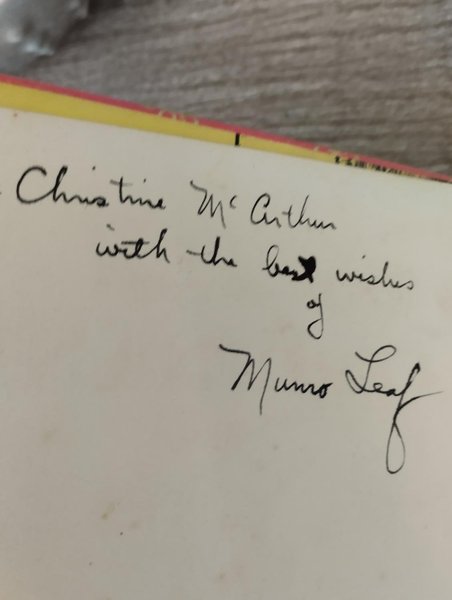 Christine McArthur
with the best wishes
of
Munro Leaf